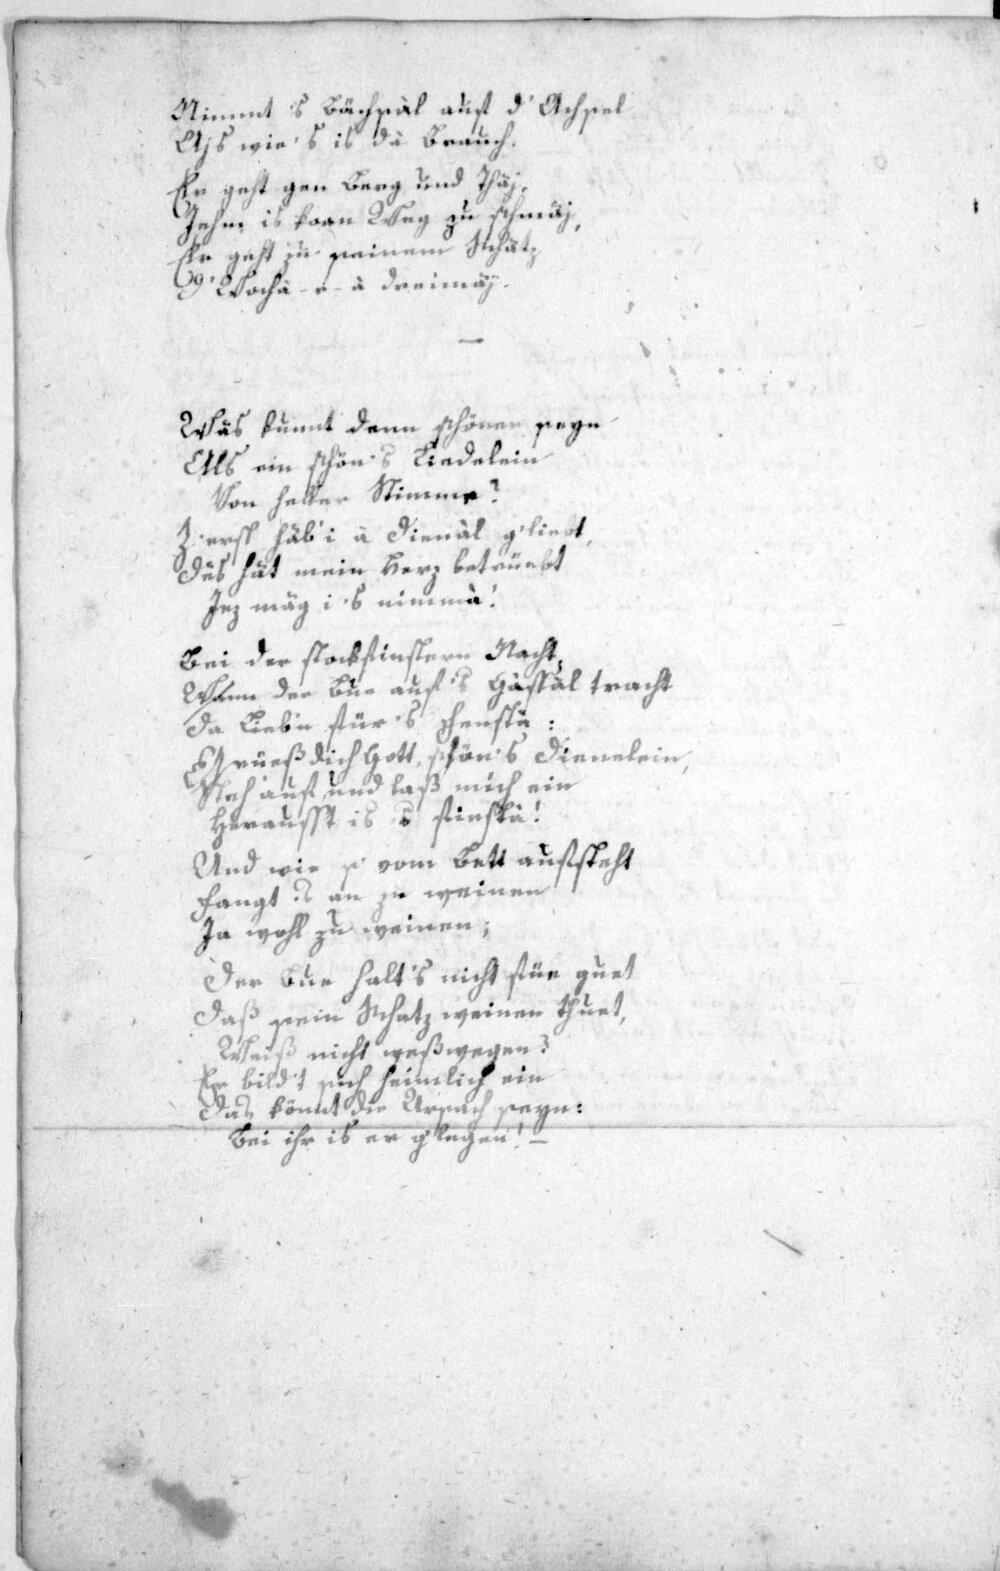 Nimmt 's Büchsàl auf d' Achsel
Ajs wie 's is dà Brauch.
Er geht gen Berg und Thäj,
Jehm is koan Weg zu schmäj,
Er geht zu seinem Schätz
D' Wochà-r-à dreimäj.
—
Wäs kunnt denn schöner seyn
Als ein schön's Liedelein
Von heller Stimme?
Z'erst häb' i à Dienàl g'liebt,
Dës hät mein Herz betrüebt
Jez mäg i 's nimmà!
Bei der stockfinstern Nacht,
Wann der Bue auf's Gässàl tracht
Da Lieb'n für's Fenstà:
Grüeß dich Gott, schön's Dienelein,
Steh' auf und laß mich ein
Herausst is 's finstà!
Und wie s' vom Bett aufsteht
Fangt 's an zu weinen
Ja wohl zu weinen;
Der Bue halt's nicht für guet
Daß sein Schatz weinen thuet,
Weiß nicht weßwegen?
Er bild't sich heimlich ein
Das könnt die Ursach seyn:
Bei ihr is er g'legen! —